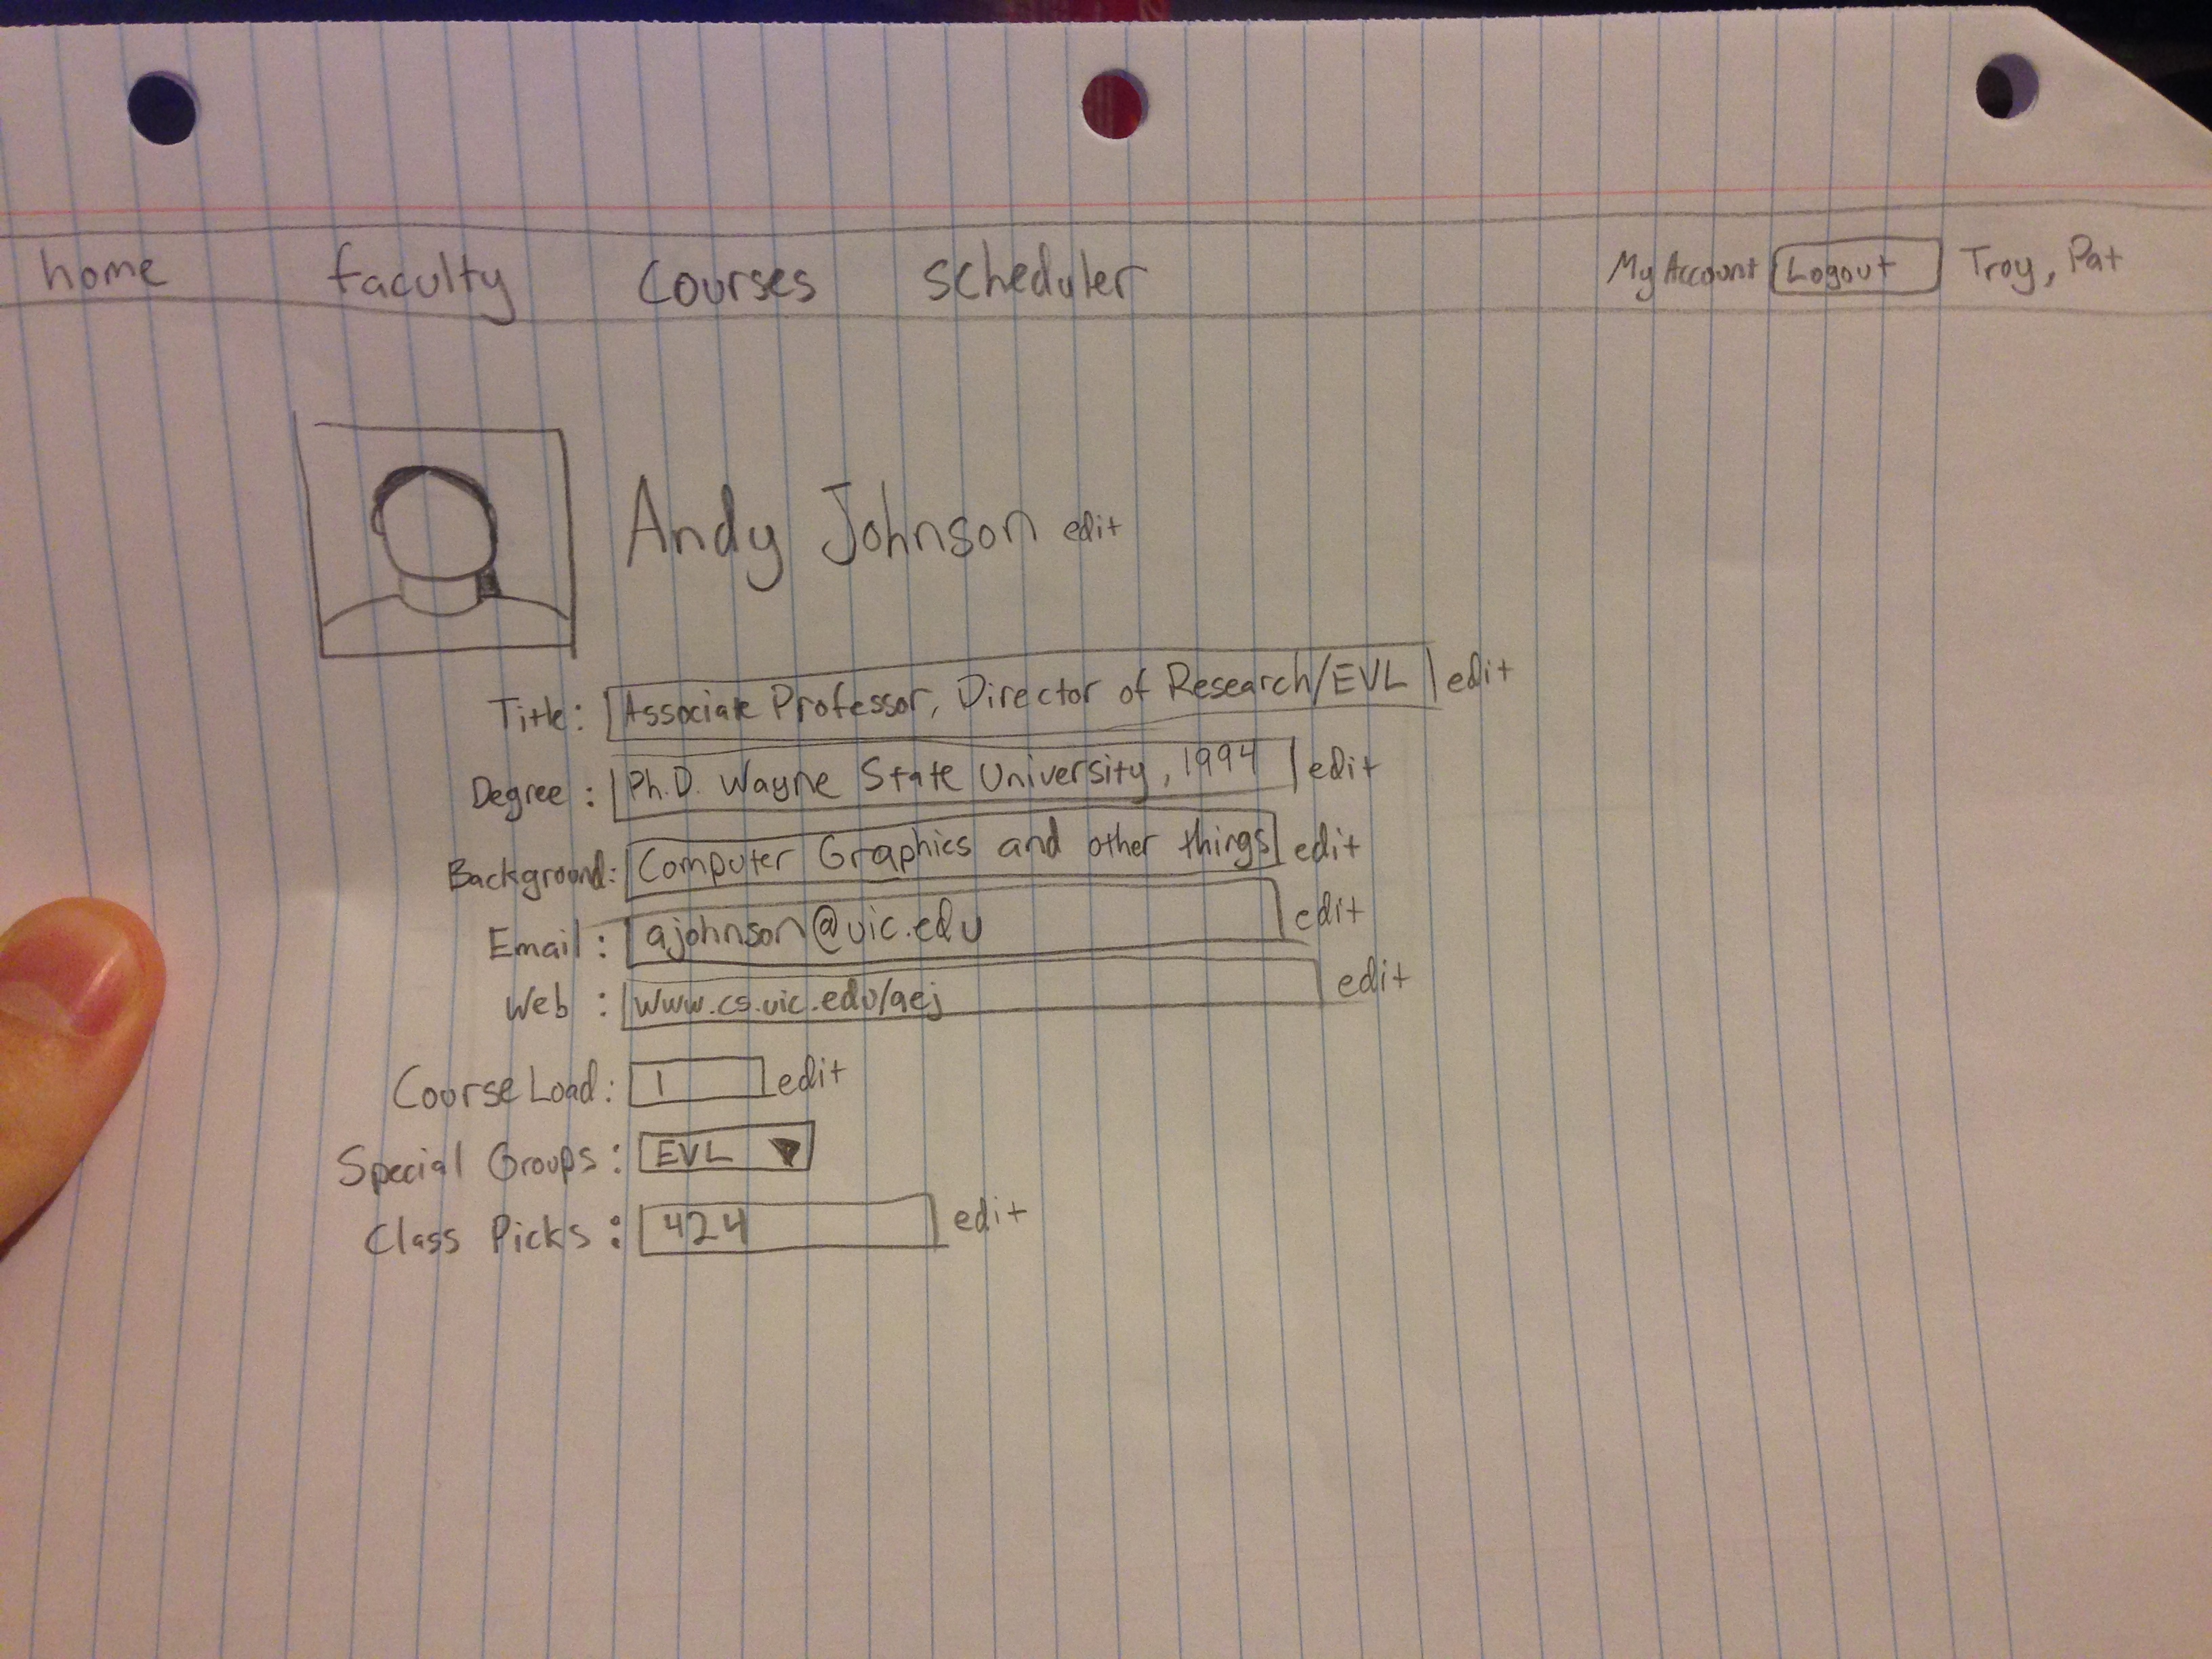 home faculty Courses scheduler My Account Logout Troy, Pat
Andy Johnson edit
Title: Associate Professor, Director of Research/EVL edit
Degree: Ph.D. Wayne State University, 1994 edit
Background: Computer Graphics and other things edit
Email: ajohnson@uic.edu edit
Web: www.cs.uic.edu/aej edit
Course Load: 1 edit
Special Groups: EVL
Class Picks: 424 edit